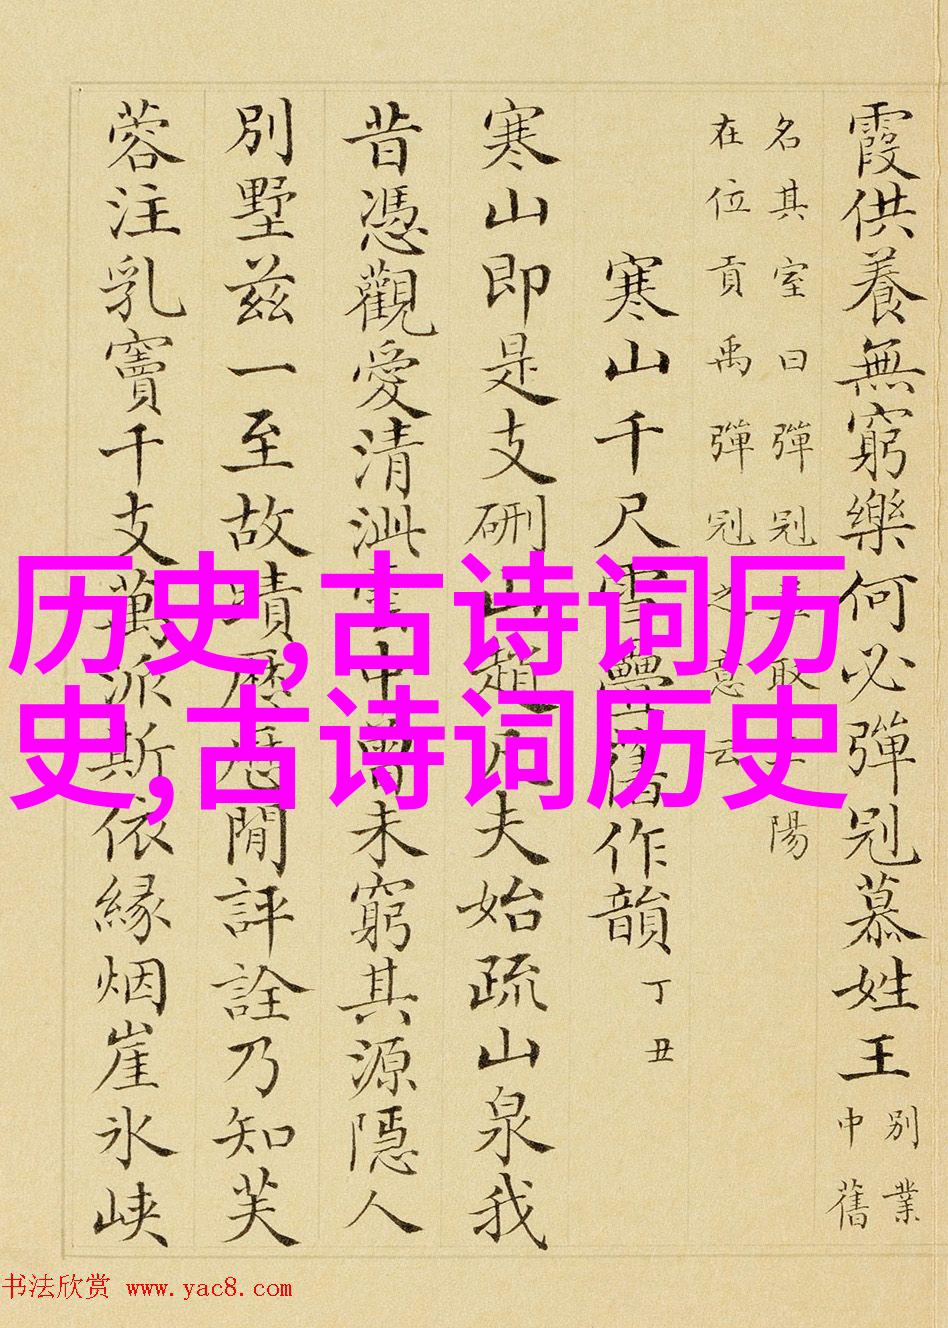 霞供養無窮樂何必彈冠慕姓王
別業
中舊
名其室曰彈冠取陽
在位貢禹彈冠之意云
寒山千尺雪疊舊作韻
丁丑
寒山即是支硎山趙匹夫始疏山泉我
昔憑觀愛清泚中曾未窮其源隱人
別墅茲一至故蹟歷歷閒評詮乃知芙
蓉注乳竇千支萬派斯依緣烟崖氷峽
历史,古诗词历
史,古诗词历史
书法欣赏 www.yac8.com